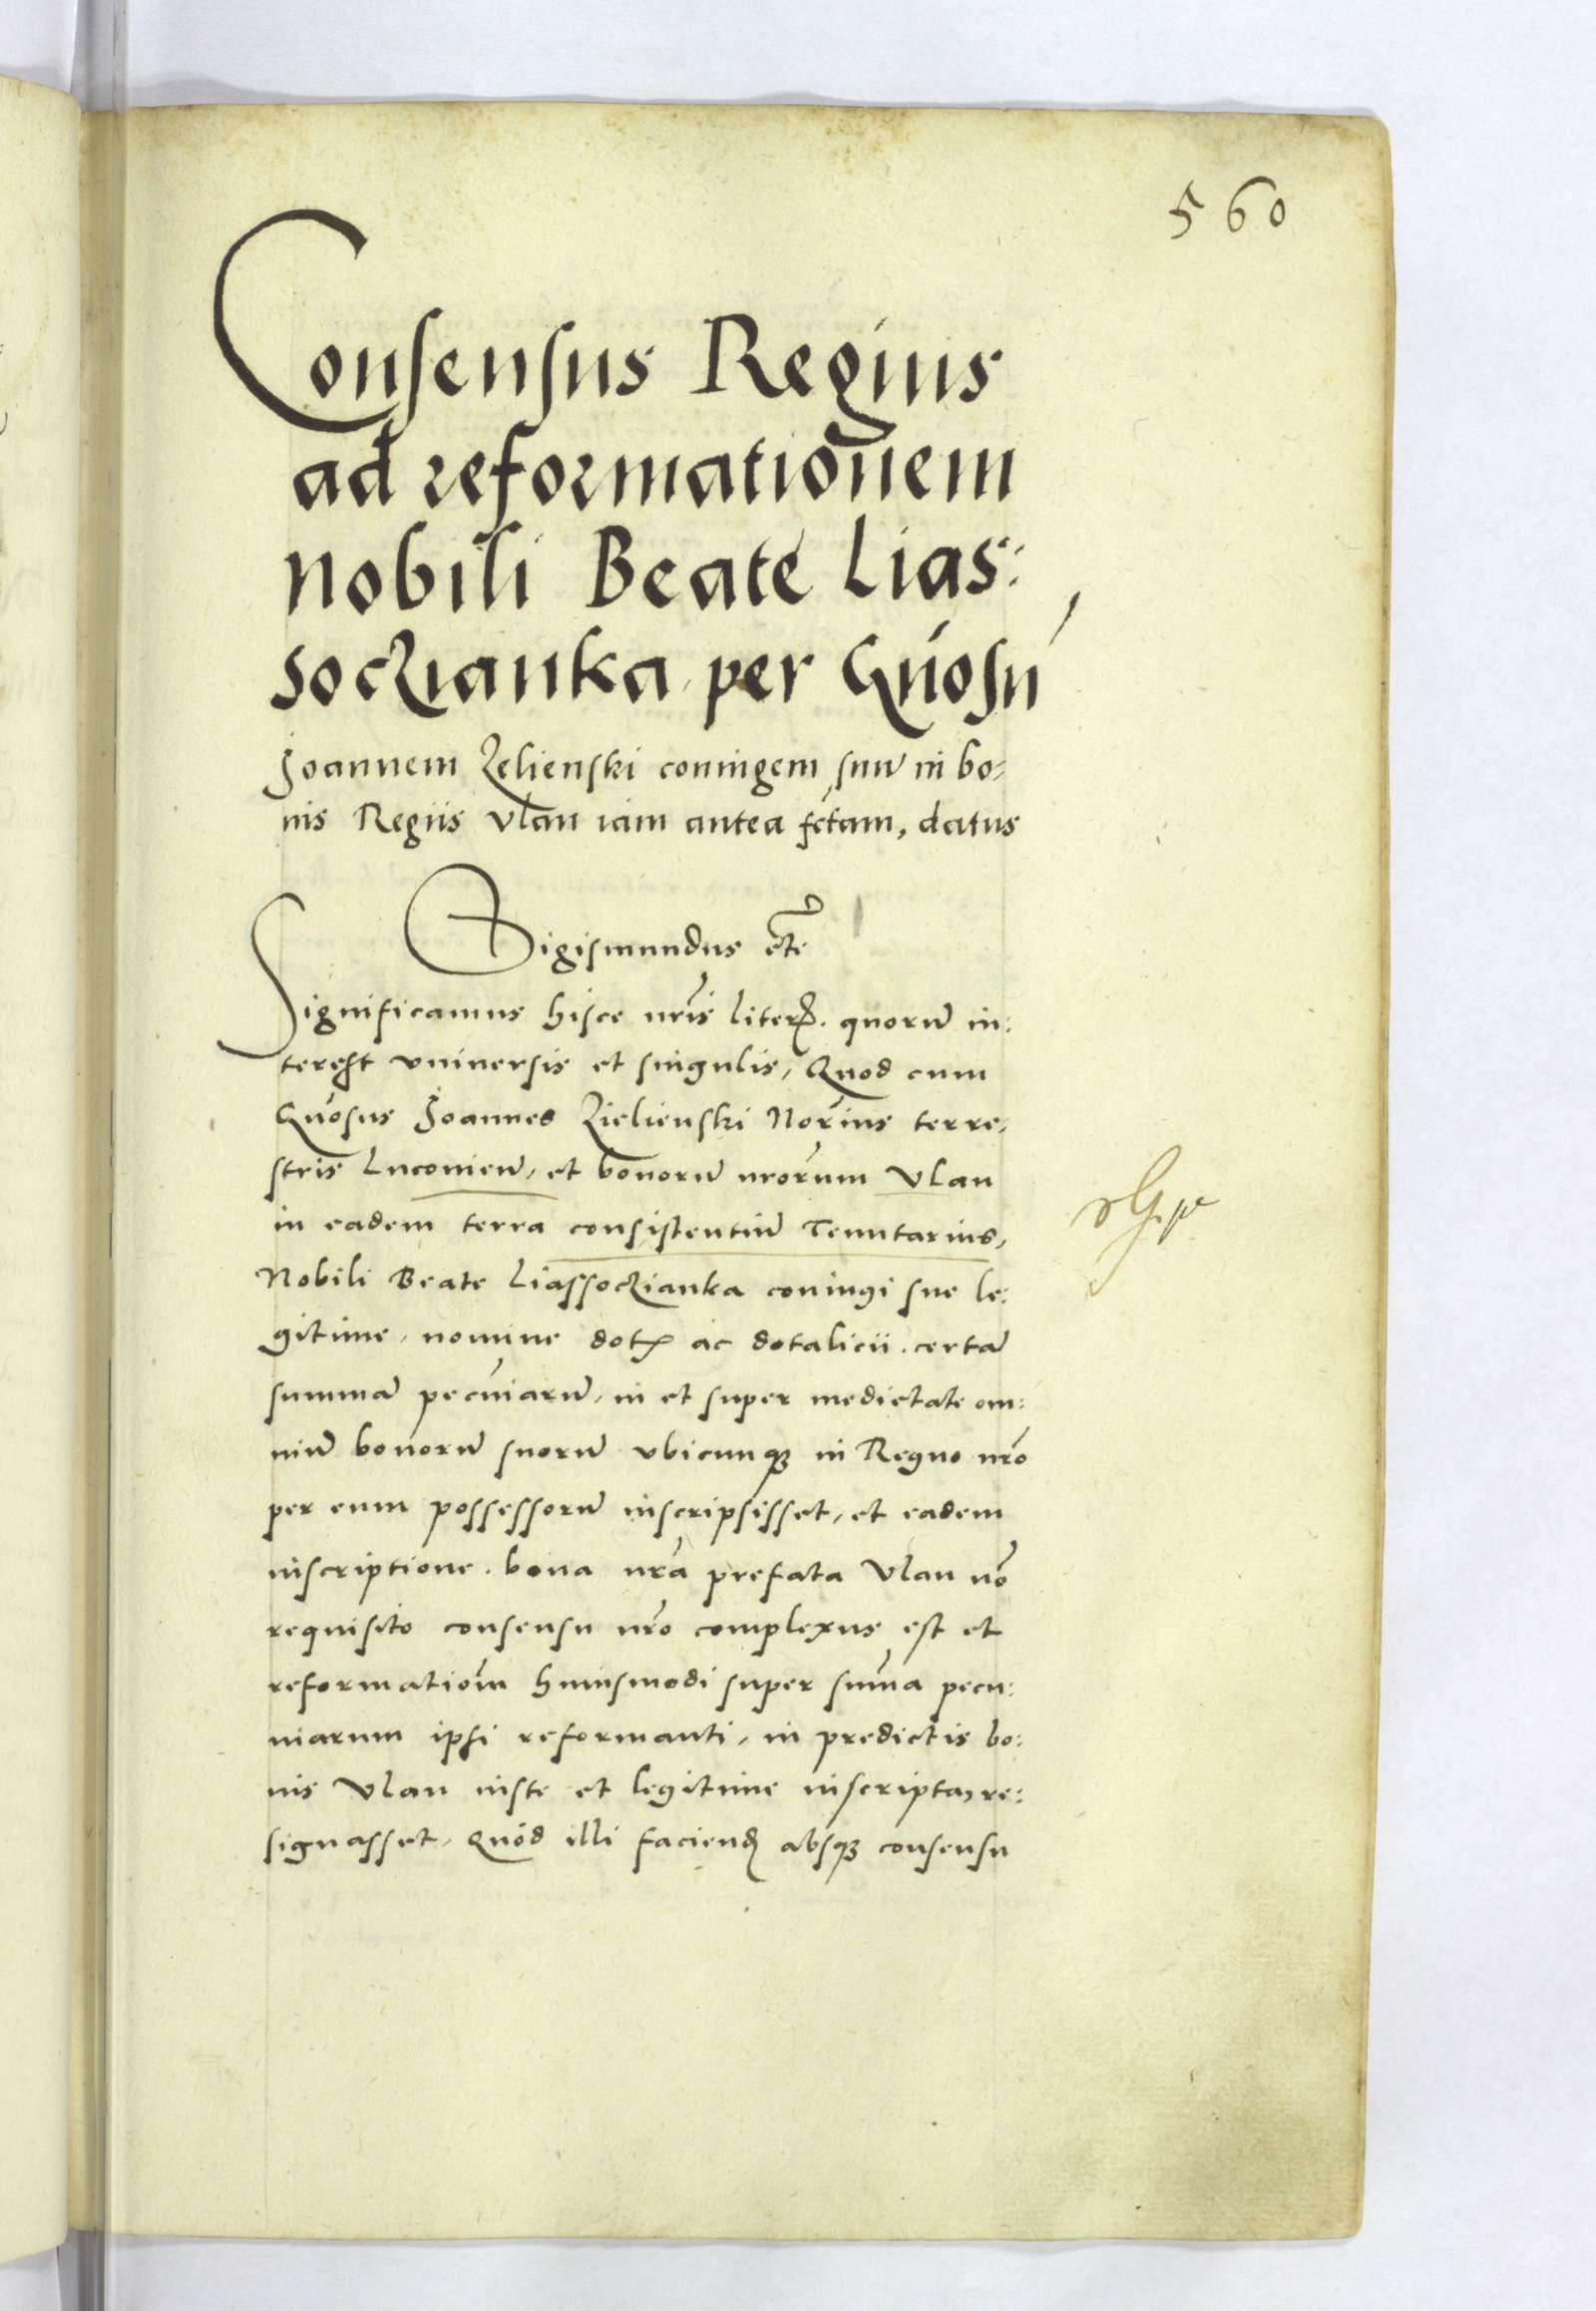 560
Consensus Regius
ad reformationem
nobili Beate Lias:
soczianka per Gnosu
Joannem Zelienski coniugem suu in bo-
nis Regiis Vlan iam antea fctam, datus
Sigismundus etc
Significamus hisce nris literis. quoru in:
terest vniuersis et singulis, Quod cum
Gnosus Joannes Zielienski Notarius terre-
stris Luconien, et bonoru nrorum Vlan
in eadem terra consistentiu Tenutarius,
Nobili Beate Liassoczianka coniugi sue le:
gitime, nomine dotis ac dotalicii. certa
summa pecuniaru, in et super medietate om:
niu bonoru suoru vbicunqz in Regno nro
per eum possessoru inscripsisset, et eadem
inscriptione. bona nra prefata Vlan no
requisito consensu nro complexus est et
reformatiom huiusmodi super suma pecu:
niarum ipsi reformanti, in predictis bo:
nis Vlan iuste et legitime inscripta, re:
signasset, Quod illi faciend absqz consensu